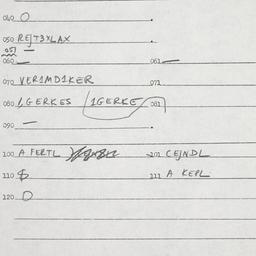 040 O
050 REJT3XLAX
051 —
060 — 061 —
070 VER1MD1KER 071
080 1GERKES /1GERKE/ 081
090 —
100 A FERTL 101 CEJNDL
110 $ 111 A KEPL
120 O